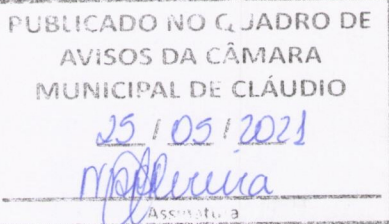 PUBLICADO NO QUADRO DE
AVISOS DA CÂMARA
MUNICIPAL DE CLÁUDIO
25 / 05 / 2021
Assinatura